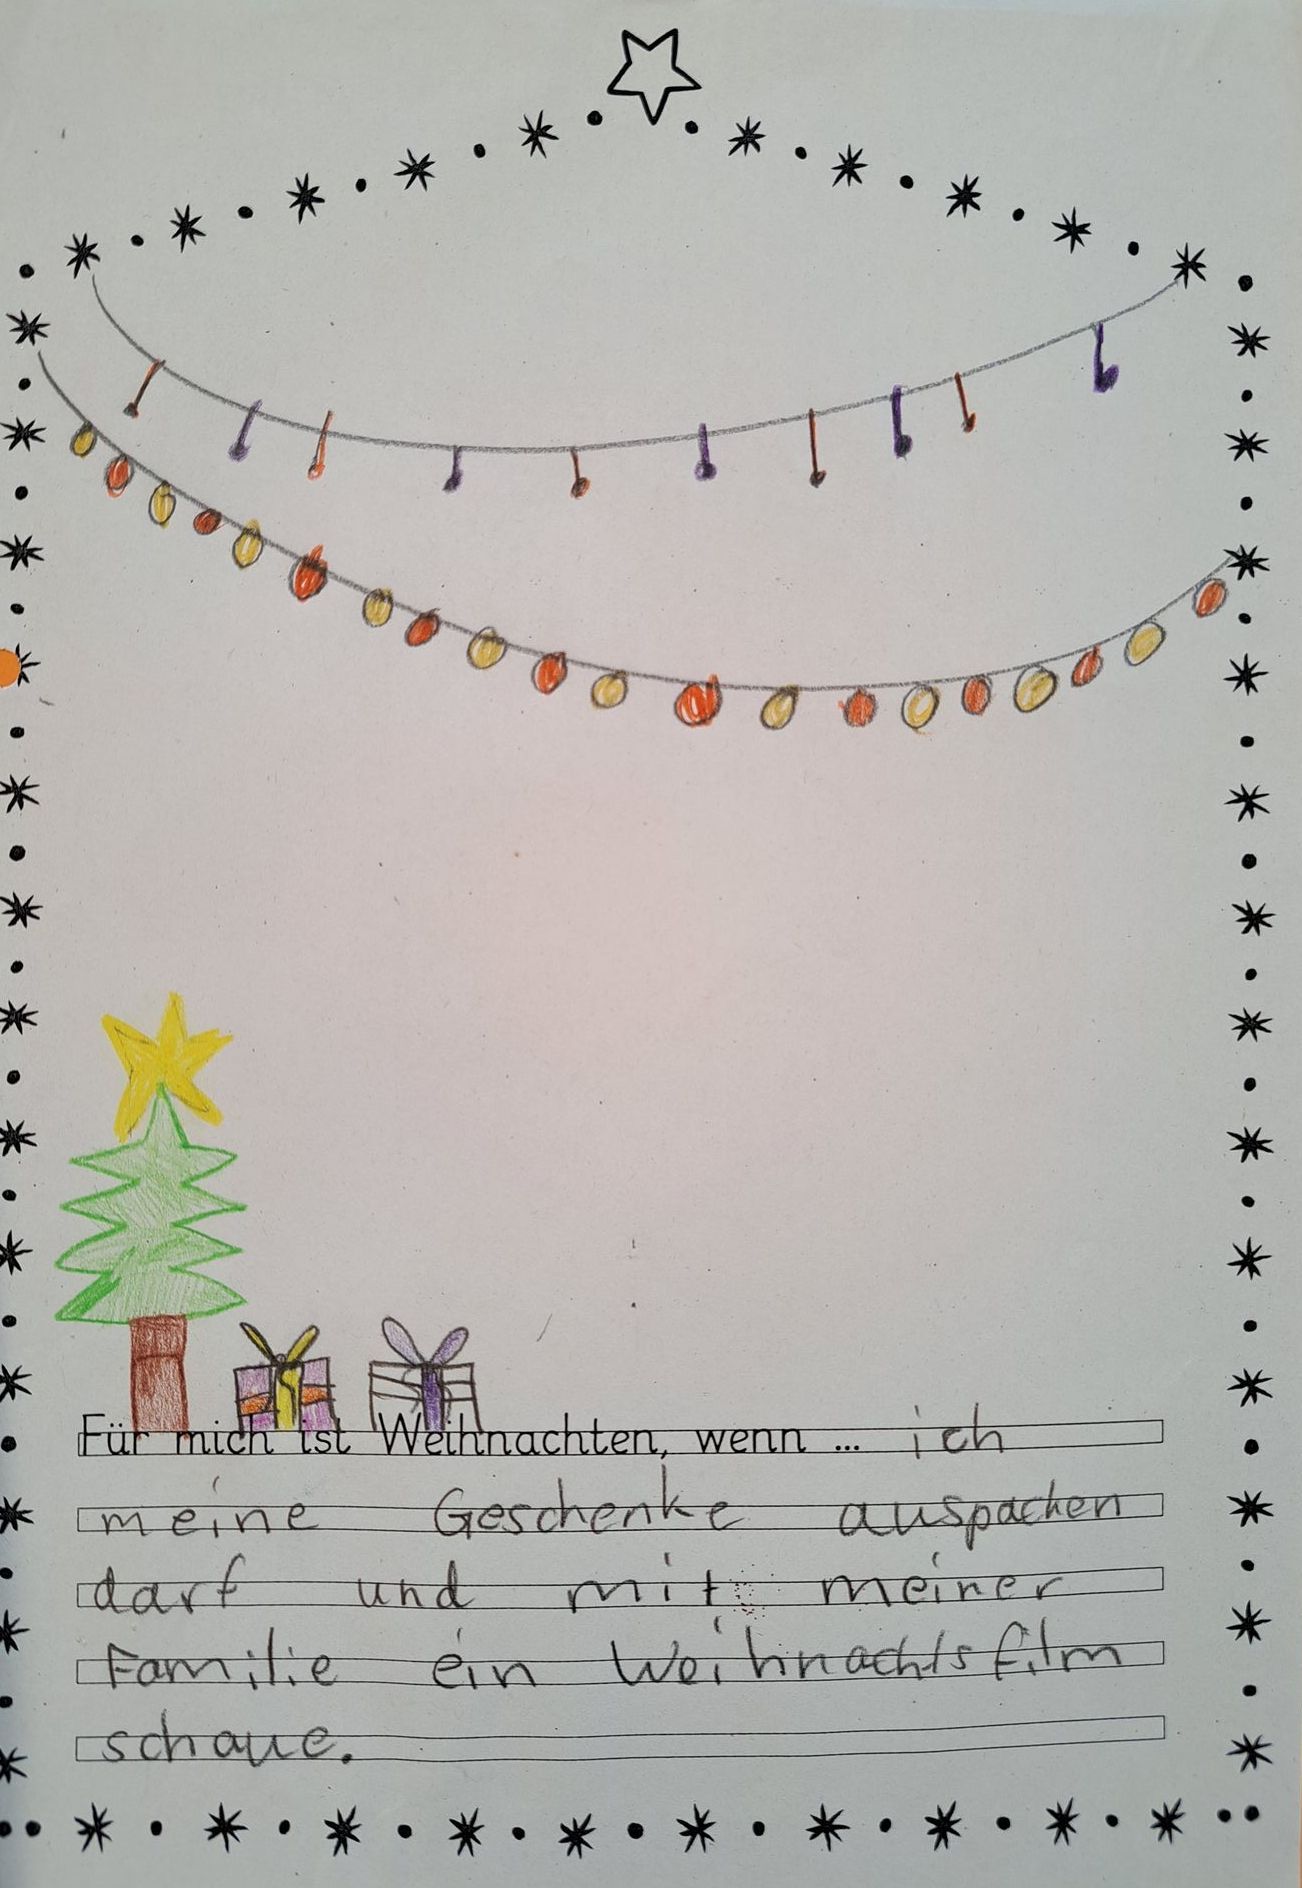 Für mich ist Weihnachten, wenn ... ich
meine Geschenke auspacken
darf und mit meiner
Familie ein Weihnachtsfilm
schaue.